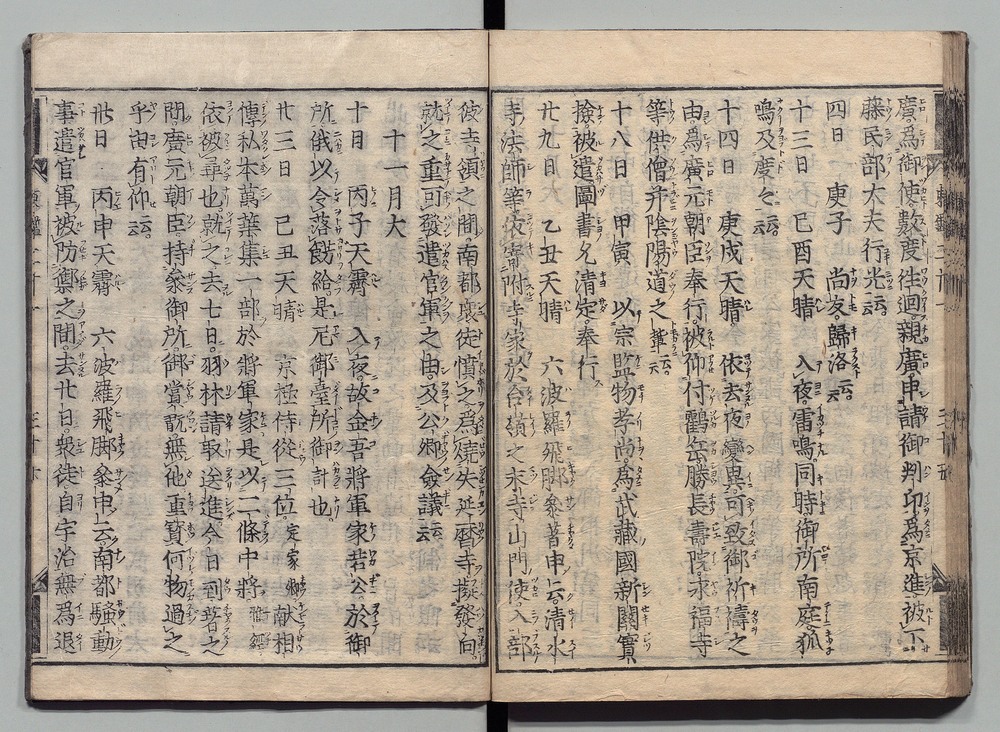 廣爲御使數度往迴親廣申請御判印爲京進被下
藤民部大夫行光云云
四日 庚子 尚友歸洛云云
十三日 己酉天晴 入夜雷鳴同時御所南庭狐
鳴及度々云云
十四日 庚戌天晴 依去夜變異可致御祈禱之
由爲廣元朝臣奉行被仰付鶴岳勝長壽院永福寺
等供僧并陰陽道之輩云云
十八日 甲寅 以宗監物孝尚爲武藏國新開實
撿被遣圖書允清定奉行
廿九日 乙丑天晴 六波羅飛脚參著申云清水
寺法師等依寄附寺家於台嶺之末寺山門使入部
彼寺領之間南都衆徒憤之爲燒失延曆寺擬發向
就之重可發遣官軍之由及公卿僉議云云
十一月大
十日 丙子天霽 入夜故金吾將軍家若公於御
所俄以令落餝給是尼御臺所御計也
廿三日 己丑天晴 京極侍從三位定家卿献相
傳私本萬葉集一部於將軍家是以二條中將雅經
依被尋也就之去七日羽林請取送進今日到著之
間廣元朝臣持參御所御賞翫無他重寶何物過之
乎由有仰云云
卅日 丙申天霽 六波羅飛脚參申云南都騷動
事遣官軍被防禦之間去廿日衆徒自宇治無爲退